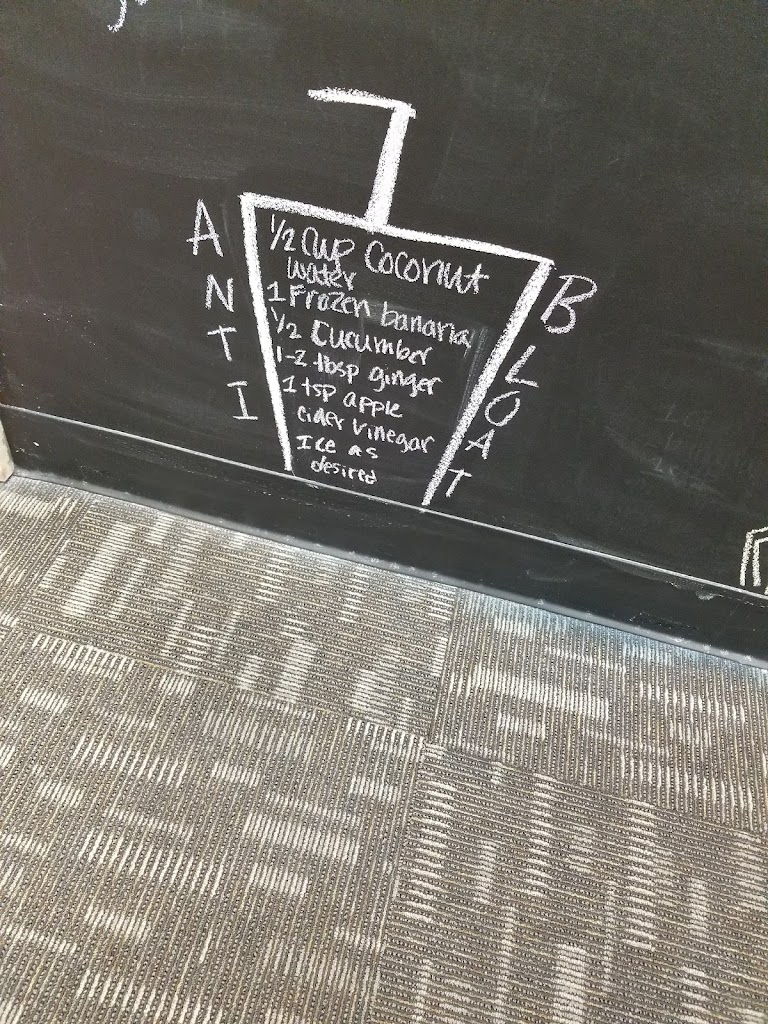 ANTI
BLOAT
1/2 Cup Coconut
water
1 Frozen banana
1/2 Cucumber
1-2 tbsp ginger
1 tsp apple
cider vinegar
Ice as
desired